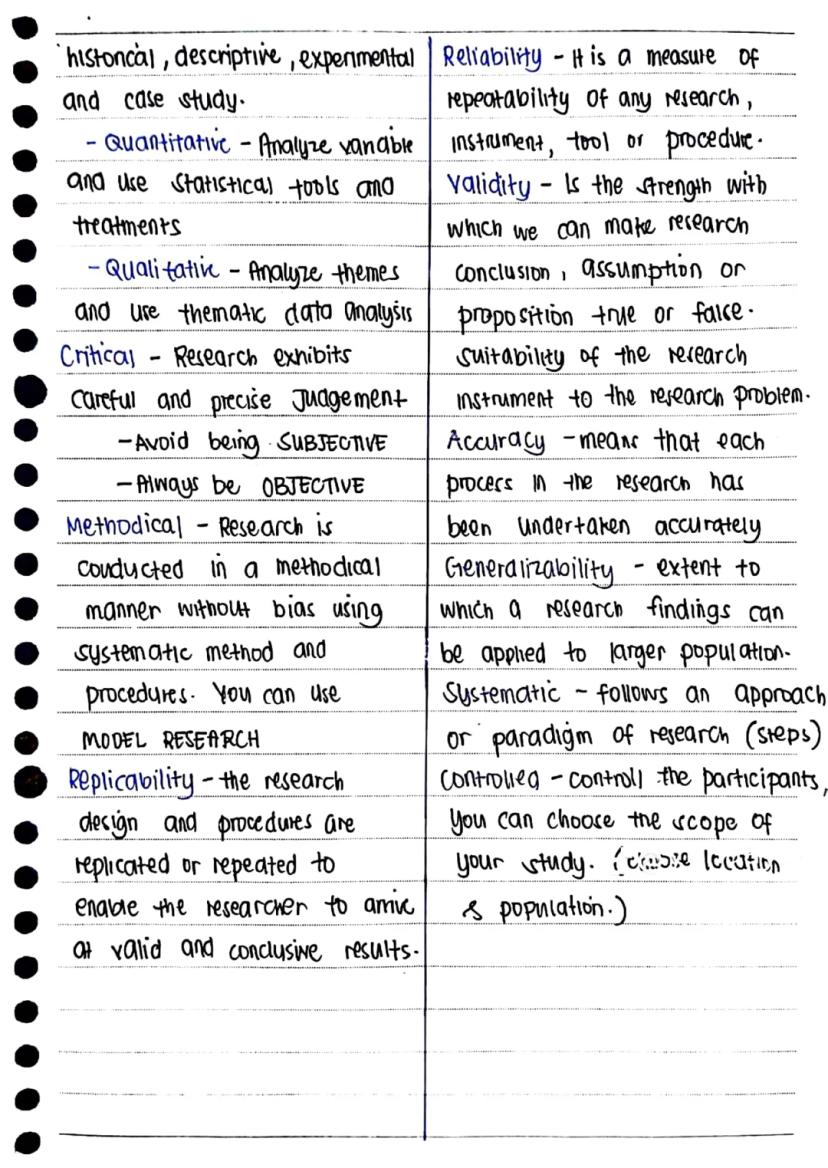 historical, descriptive, experimental
and case study.
- Quantitative - Analyze variable
and use statistical tools and
treatments
- Qualitative - Analyze themes
and use thematic data analysis
Critical - Research exhibits
careful and precise Judgement
- Avoid being SUBJECTIVE
- Always be OBJECTIVE
Methodical - Research is
conducted in a methodical
manner without bias using
systematic method and
procedures. You can use
MODEL RESEARCH
Replicability - the research
design and procedures are
replicated or repeated to
enable the researcher to arrive
at valid and conclusive results.
Reliability - It is a measure of
repeatability of any research,
instrument, tool or procedure.
Validity - Is the strength with
which we can make research
conclusion, assumption or
proposition true or false.
suitability of the research
instrument to the research problem.
Accuracy - means that each
process in the research has
been undertaken accurately
Generalizability - extent to
which a research findings can
be applied to larger population.
Systematic - follows an approach
or paradigm of research (steps)
Controlled - controll the participants,
you can choose the scope of
your study. (choose location
& population.)